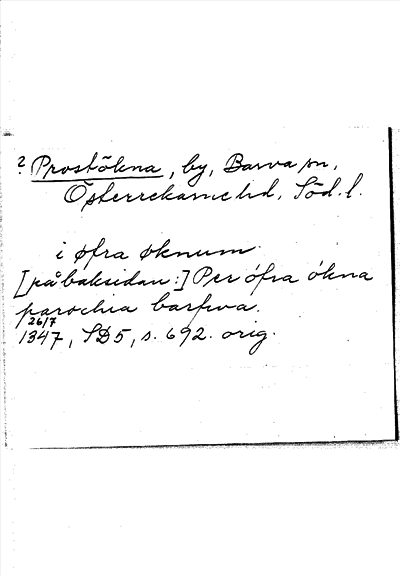 ? Prostökna, by, Barva sn,
Österrekarne hd, Söd. l.
i øfra øknum.
[på baksidan:] Per ófra ókna
parochia barfwa.
26/7
1347, SD5, s. 692. orig.